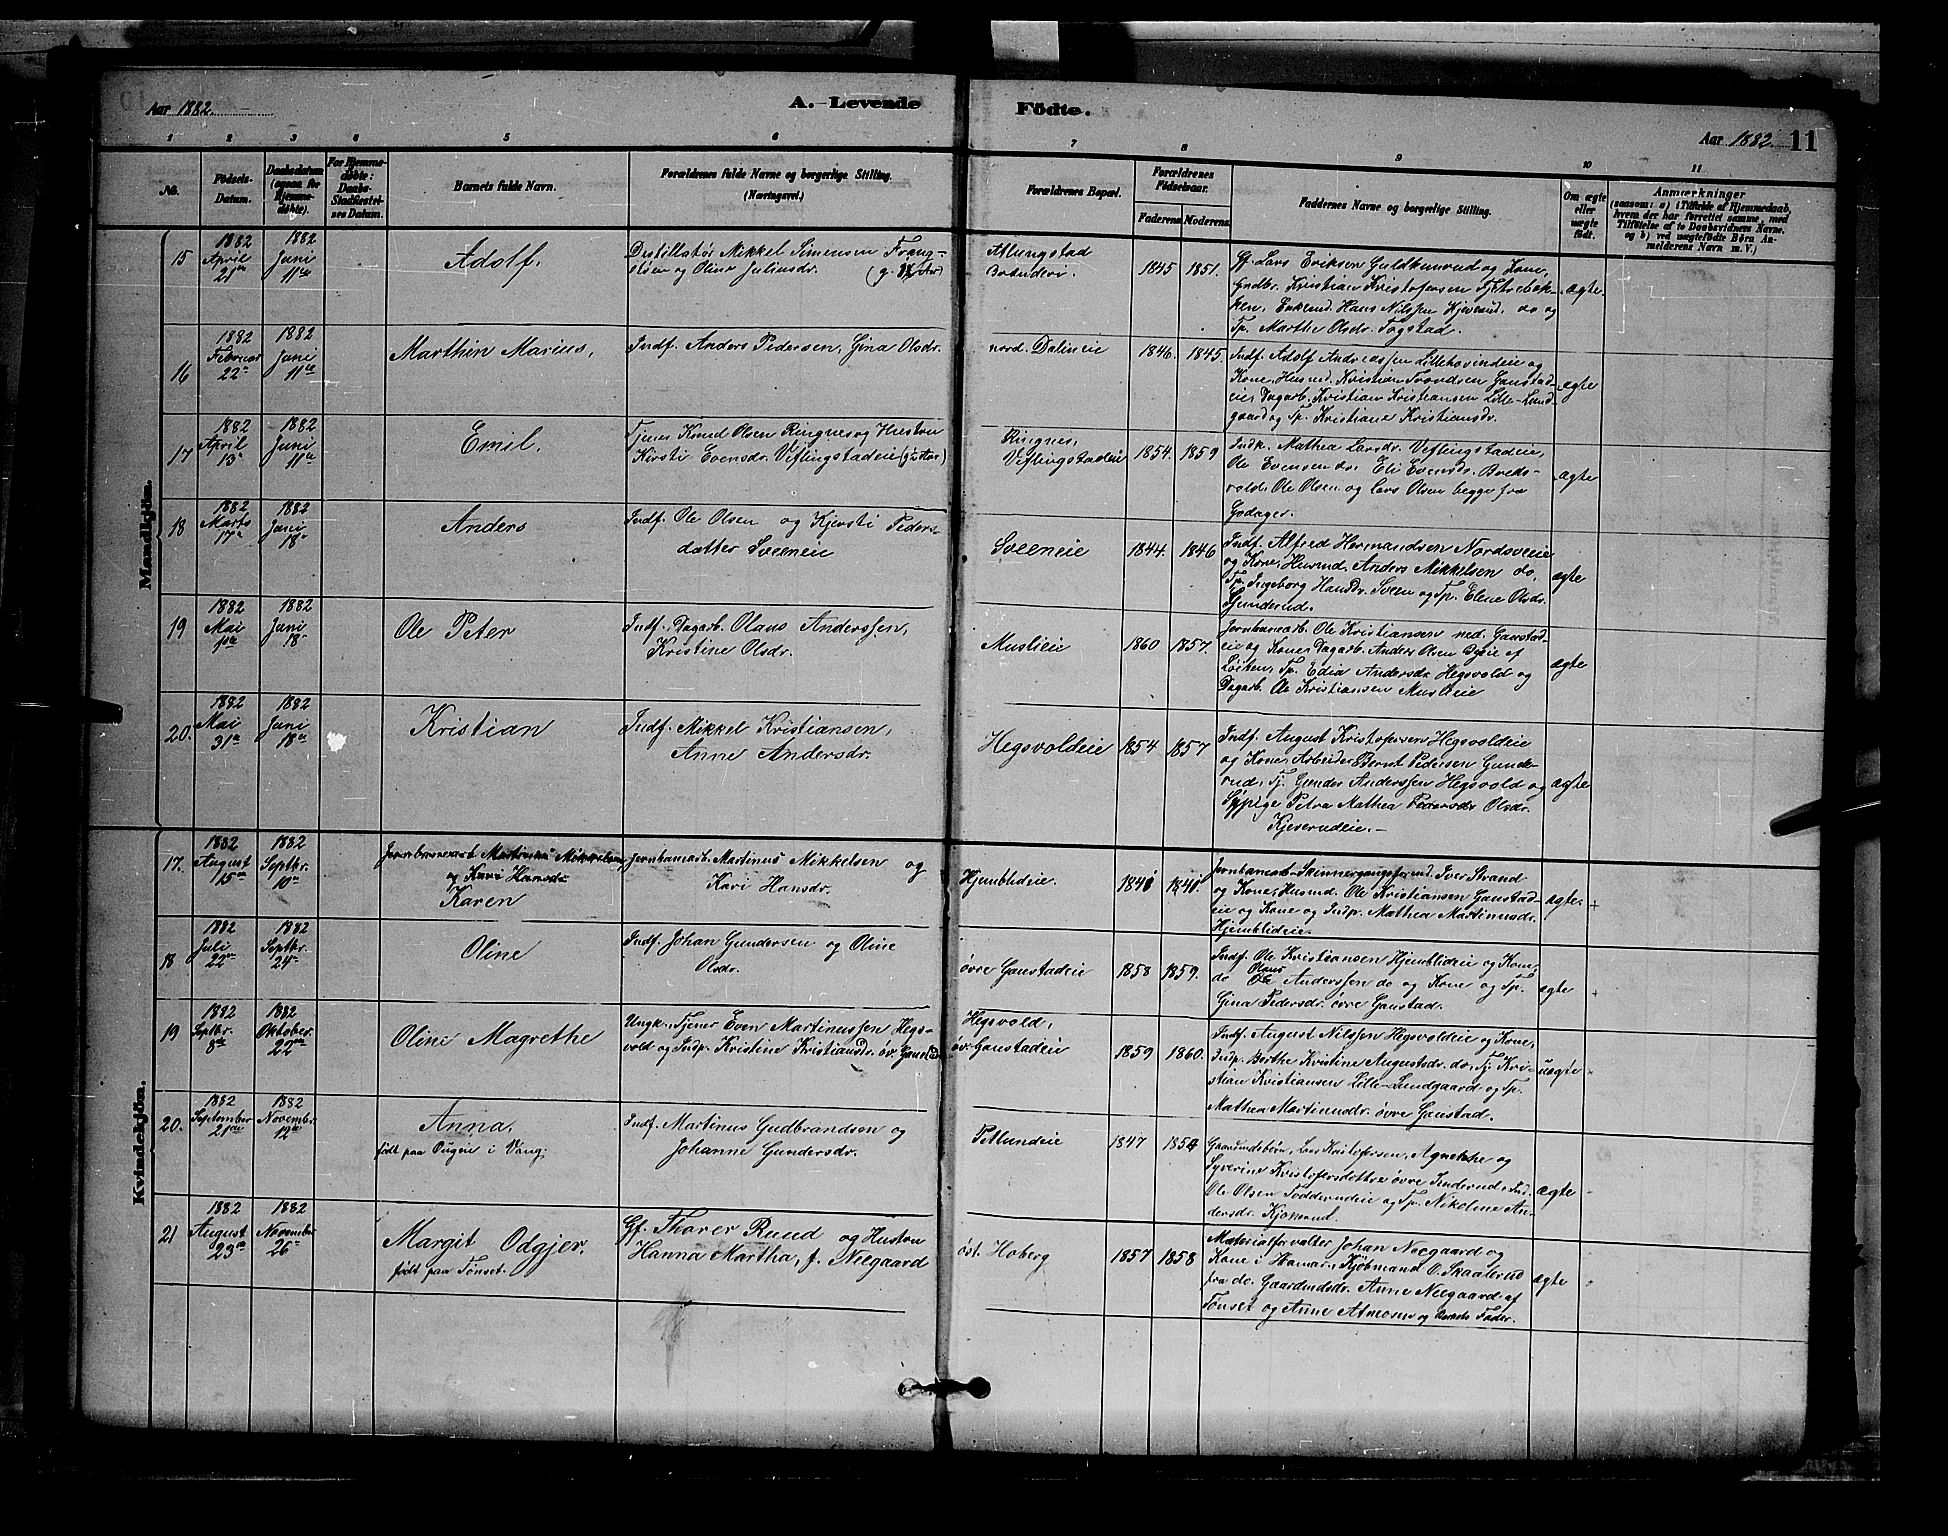 Aar 1882.
A. Levende
Födte.
Aar 1882.
11
1 2 3 4 5 6 7 8 9 10 11
No.
Födsels-
Datum.
Daabsdatum
(ogsaa for
Hjemme-
döbte).
For Hjemme-
döbte:
Daabs-
Stadfæstel-
ses Datum.
Barnets fulde Navn.
Forældrenes fulde Navne og borgerlige Stilling.
(Næringsvei.)
Forældrenes Bopæl.
Forældrenes
Födselsaar.
Faderens
Moderens
Faddernes Navne og borgerlige Stilling.
Om ægte
eller
uægte
födt.
Anmærkninger
(saasom: a) i Tilfælde af Hjemmedaab,
hvem der har forrettet samme, med
Tilföielse af to Daabsvidners Navne,
og b) ved uægtefödte Börn An-
melderens Navn m. V.)
Mandkjön.
15
1882
April
21de
1882
Juni
11te
Adolf.
Destillatør Mikkel Simensen
og Oline Juliusdr.
Atlungstad
Brænderi.
1845
1851.
Gf. Lars Eriksen Guldhusrud og Kone,
Gndbr. Kristian Kristofersen
Enkemd. Hans Nilssen Kjeverud, do og
Tp. Marthe Olsdr. Fogstad.
ægte.
16
1882
Februar
22
1882
Juni
11te
Marthin Marius,
Indf. Anders Pedersen, Gina Olsdr.
nord. Dalineie
1846.
1845.
Indf. Adolf Andreassen Lillehovindeie og
Kone, Husmd. Kristian Trondsen Gaustad-
eie, Dagarb. Kristian Kristiansen Lille-Lund-
gaard og Tp. Kristiane Kristiansdr.
ægte
17
1882
April
13
1882
Juni
11te
Emil.
Tjener Knud Olsen Ringnes og Hustru
Kirsti Evensdr. Viflingstadeie
Ringnes,
Viflingstadeie
1854.
1859
Indk. Mathea Larsdr. Viflingstadeie,
Ole Evensen do. Eli Evensdr. Breds-
vold. Ole Olsen og Lars Olsen begge fra
Godager.
ægte
18
1882
Marts
17
1882
Juni
18
Anders
Indf. Ole Olsen og Kjersti Peders-
datter Sveeneie
Sveeneie
1844.
1846
Indf. Alfred Hermandsen Nordsveeie
og Kone, Husmd. Anders Mikkelsen do,
Tp. Ingeborg Hansdr. Sveen og Tp. Elene Olsdr.
Gunderud.
ægte
19
1882
Mai
1882
Juni
18
Ole Peter
Indf. Dagarb. Olaus Anderssen,
Kristine Olsdr.
Muslieie
1860
1857.
Jernbanearb. Ole Kristiansen ned. Gaustad-
eie og Kone, Dagarb. Anders Olsen Byeie af
Løiten, Tp. Edia Andersdr. Hegsvold og
Dagarb. Ole Kristiansen Muslieie
ægte
20.
1882
Mai
31te
1882
Juni
18de
Kristian
Indf. Mikkel Kristiansen,
Anne Andersdr.
Hegsvoldeie
1854
1857
Indf. August Kristofersen Hegsvoldeie
og Kone, Arbeider Bernt Pedersen Gunde-
rud, Tj. Gunder Anderssen Hegsvold og
Sypige Petra Mathea Pedersdr Olsdr.
Kjeverudeie.
ægte
Kvindekjön.
17.
1882
August
15de
1882
Septbr.
10de
Jernbanearb Martinus Mikkelsen
og Kari Hansdr
Karen
Jernbanearb. Martinus Mikkelsen og
Kari Hansdr.
Hjemblideie.
1841
1841
Jernbanearb. Skinnergangsformd. Iver Strand
og Kone, Husmd. Ole Kristiansen Gaustad-
eie og Kone og Indp. Mathea Martinusdr.
Hjemblideie.
ægte. +
18
1882
Juli
22
1882
Septbr.
24
Oline
Indf. Johan Gundersen og Oline
Olsdr.
øvre Gaustadeie
1858
1859.
Indf. Ole Kristiansen Hjemblideie og Kone,
do Ole Olaus Anderssen do og Kone og Tp.
Gina Pedersdr. øvre Gaustad.
ægte
19
1882
Septbr.
8de
1882
Oktober.
22
Oline Magrethe
Ungk. Tjener Even Martinussen Hegs-
vold og Indp. Kristine Kristiansdr. øv. Gaustad
Hegsvold,
øv. Gaustadeie
1859
1860.
Indf. August Nilssen Hegsvoldeie og Kone,
Indp. Berthe Kristine Augustsdr. do, Tj. Kri-
stian Kristiansen Lille-Lundgaard og Tp.
Mathea Martinusdr. øvre Gaustad.
uægte
20.
1882
September
21de
1882
November
12te
Anna,
født paa i Vang.
Indf. Martinus Gudbrandsen og
Johanne Gundersdr.
Petlundeie
1847
1854
Gaardmdsbørn, Lars Kristofersen, Agnethe og
Syverine Kristofersdøttre øvre Inderud, Ind.
Ole Olsen Fodderudeie og Tp. Nikoline An-
dersdr. Kjøkerud.
ægte
21
1882
August
23de
1882
November
26
Margit Odgjer.
født paa Tønset.
Gf. Thorer Ruud og Hustru
Hanna Martha, f. Neegaard
øst. Hoberg
1857
1858
Materialforvalter Johan Neegaard og
Kone i Hamar, Kjøbmand O. Skaalerud
fra do. Gaardmdsdr. Anne Neegaard af
Tønset og Anne og Barnets Fader.
ægte